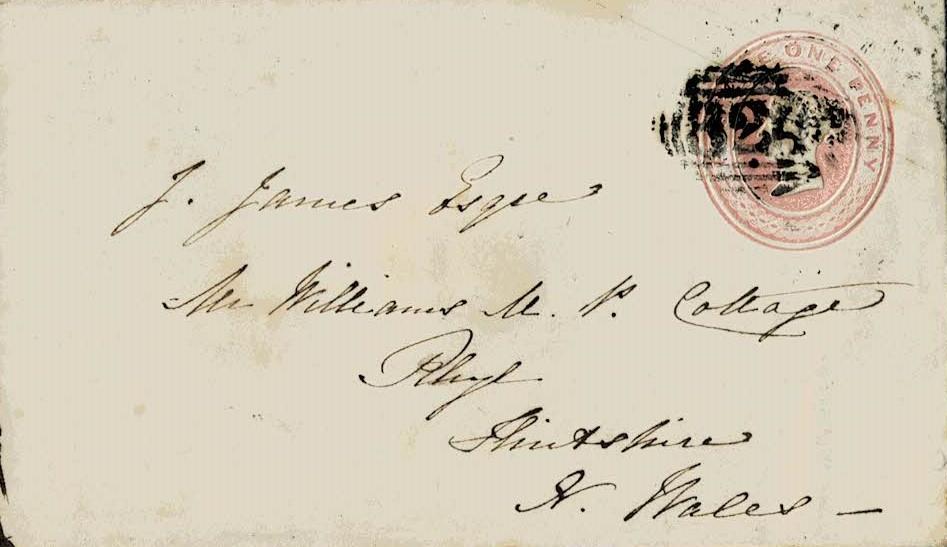 E ONE PENNY
J. James Esqre
Mr Williams M. P. Cottage
Rhyl
Flintshire
N. Wales —